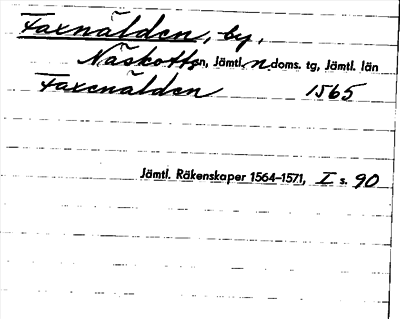 Faxnälden, by,
Näskotts sn, Jämtl. n. doms. tg, Jämtl. län
Faxenälden 1565
Jämtl. Räkenskaper 1564-1571, I s. 90